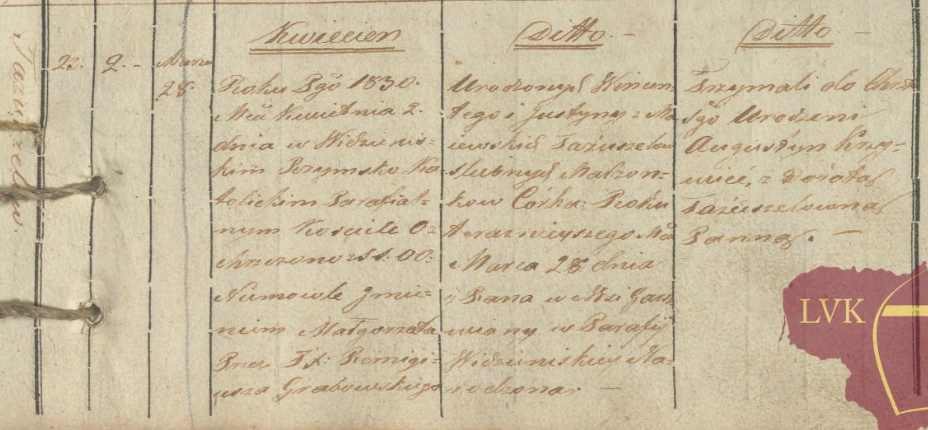 Jażuszelow.
22. 2. Marca
28.
Kwiecień
Roku Pgo 1830.
Mca Kwietnia 2.
dnia w Widzinis=
kim Rzymsko Ka
tolickim Parafial=
nym Kościele O=
chrzczono z SS. OO:
Niemowle Jmie=
niem Małgorzata
Przez JX: Remigi=
usza Grabowskiego
Ditto
Urodzonych Wincen
tego i Justyny z Ma
iewskich Jażuszelow
Slubnych Małżon=
kow Córka: Roku
teraznieyszego Mca
Marca 28 dnia
z Rana w
w Parafij
Widziniskiey Na=
rodzona. —
Ditto
Trzymali do Chrzt
Sgo Urodzeni
Augustyn Krzy=
wiec, z Dorotą
Jażuszelowną
Panną. —
LVK